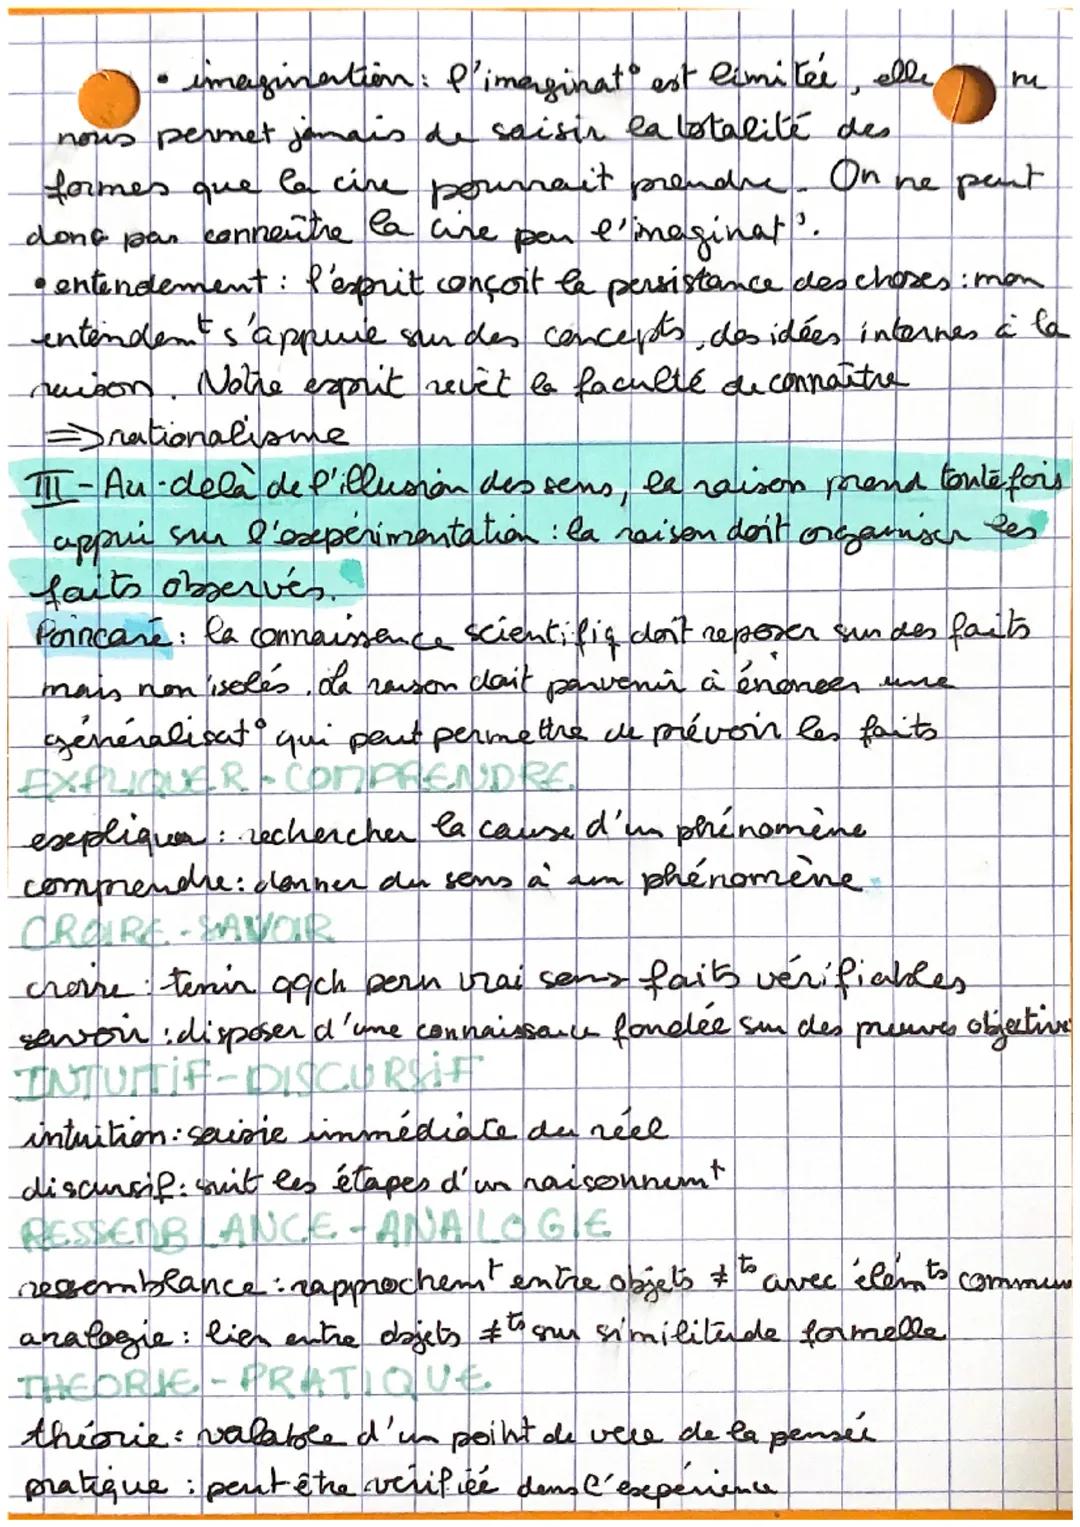 • imagination : l'imaginat° est limitée, elle ne
nous permet jamais de saisir la totalité des
formes que la cire pourrait prendre. On ne peut
donc pas connaître la cire par l'imaginat°.
• entendement : l'esprit conçoit la persistance des choses : mon
entendemt s'appuie sur des concepts, des idées internes à la
raison. Notre esprit revêt la faculté de connaître
=> rationalisme
III - Au-delà de l'illusion des sens, la raison prend toutefois
appui sur l'expérimentation : la raison doit organiser les
faits observés.
Poincaré : la connaissance scientifiq doit reposer sur des faits
mais non isolés. La raison doit parvenir à énoncer une
généralisat° qui peut permettre de prévoir les faits
EXPLIQUER - COMPRENDRE
expliquer : rechercher la cause d'un phénomène
comprendre : donner du sens à un phénomène
CROIRE - SAVOIR
croire : tenir qqch pour vrai sans faits vérifiables
savoir : disposer d'une connaissance fondée sur des preuves objective
INTUITIF - DISCURSIF
intuition : saisie immédiate du réel
discursif : suit les étapes d'un raisonnemt
RESSEMBLANCE - ANALOGIE
ressemblance : rapprochemt entre objets ≠ts avec élémts commun
analogie : lien entre objets ≠ts sur similitude formelle
THEORIE - PRATIQUE
théorie : valable d'un point de vue de la pensée
pratique : peut être vérifiée dans l'expérience